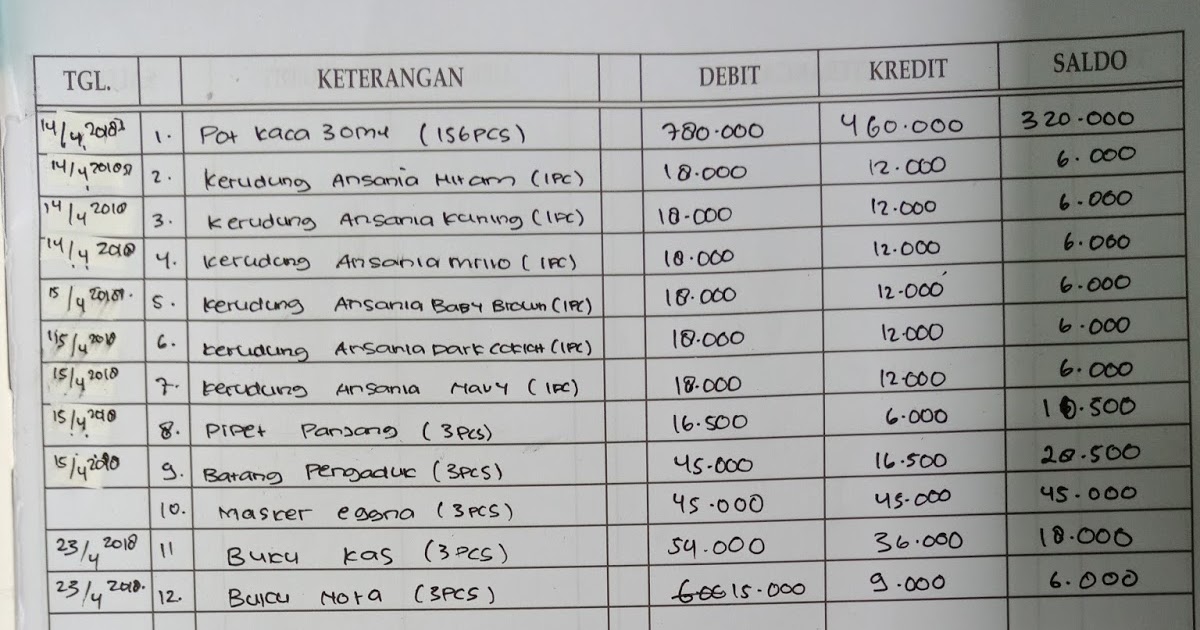 TGL. KETERANGAN DEBIT KREDIT SALDO
14/4 2018 1. Pot kaca 30ml (156PCS) 780.000 460.000 320.000
14/4 2018 2. Kerudung Ansania Hitam (1PC) 18.000 12.000 6.000
14/4 2018 3. Kerudung Ansania Kuning (1PC) 18.000 12.000 6.000
14/4 2018 4. Kerudung Ansania (1PC) 18.000 12.000 6.000
15/4 2018. 5. Kerudung Ansania Baby Brown (1PC) 18.000 12.000 6.000
15/4 2018 6. Kerudung Ansania Dark (1PC) 18.000 12.000 6.000
15/4 2018 7. Kerudung Ansania Navy (1PC) 18.000 12.000 6.000
15/4 2018 8. Pipet Panjang (3PCS) 16.500 6.000 10.500
15/4 2018 9. Batang Pengaduk (3PCS) 45.000 16.500 28.500
10. Masker (3PCS) 45.000 45.000 45.000
23/4 2018 11 Buku Kas (3PCS) 54.000 36.000 18.000
23/4 2018. 12. Buku Nota (3PCS) 15.000 9.000 6.000